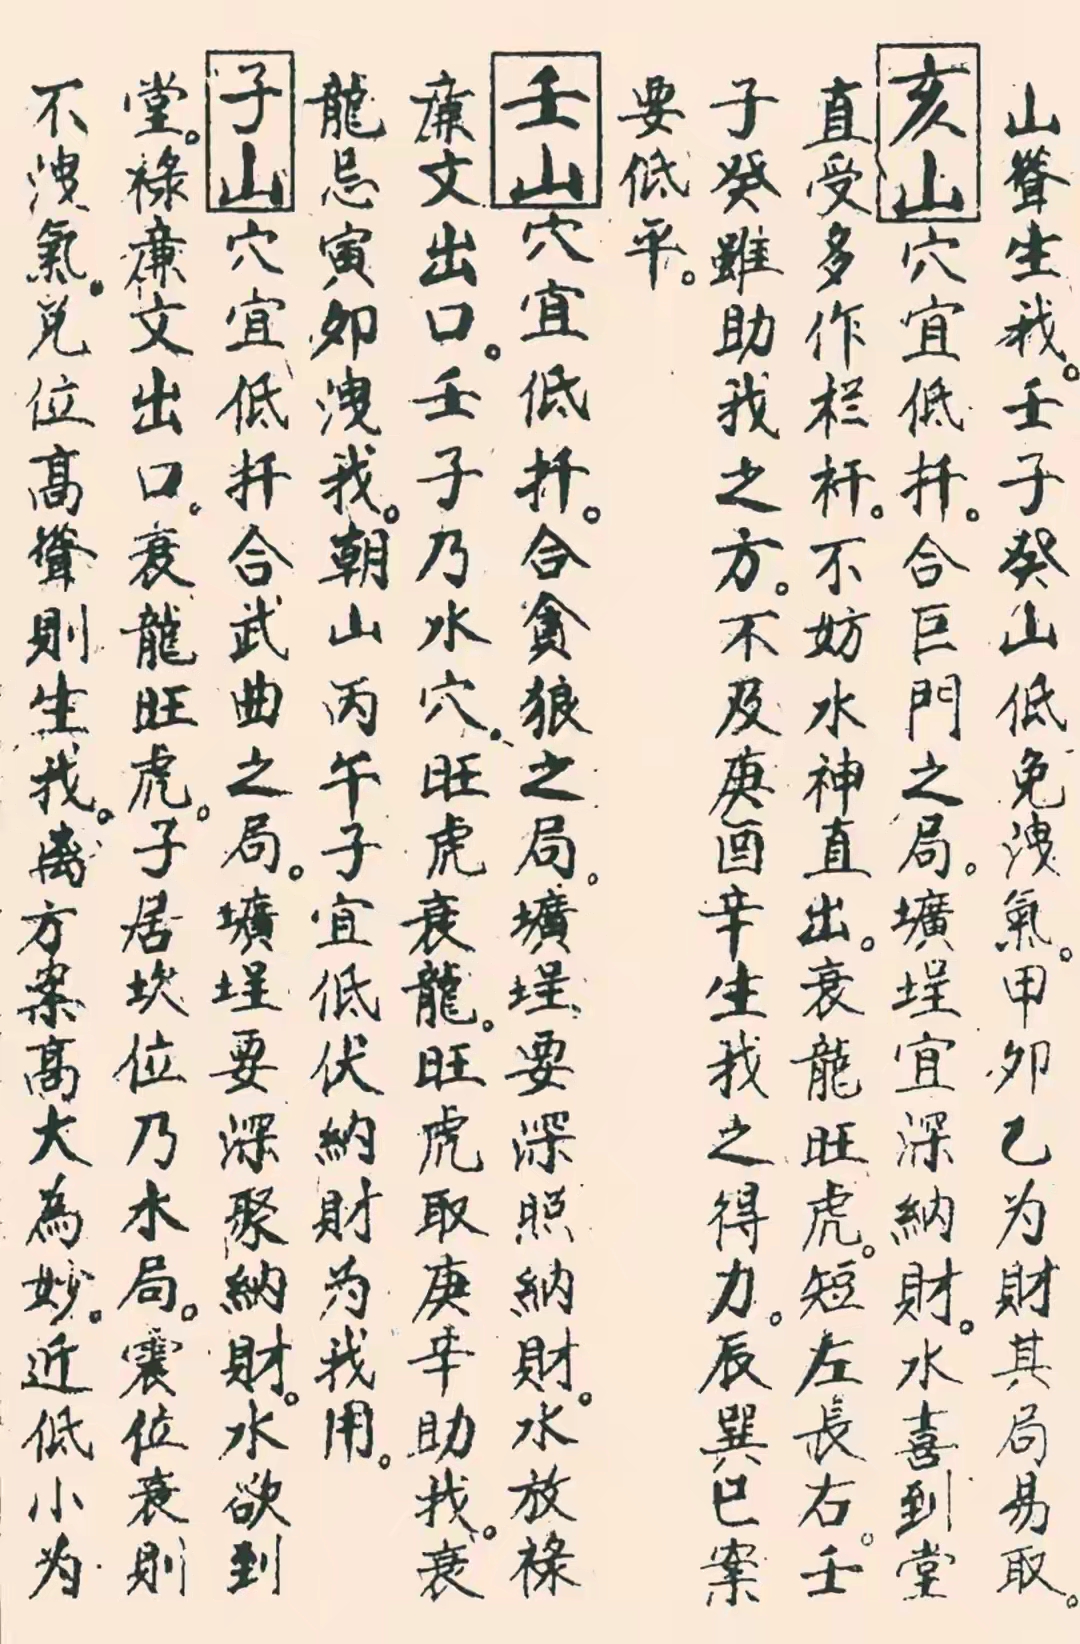 山聳生我。壬子癸山低免洩氣。甲卯乙为財其局易取。
亥山穴宜低扦。合巨門之局。壙埕宜深納財。水喜到堂
直受多作栏杆。不妨水神直出。衰龍旺虎。短左長右。壬
子癸雖助我之方。不及庚酉辛生我之得力。辰巽巳案
要低平。
壬山穴宜低扦。合貪狼之局。壙埕要深照納財。水放祿
廉文出口。壬子乃水穴。旺虎衰龍。旺虎取庚辛助我。衰
龍忌寅卯洩我。朝山丙午子宜低伏納財为我用。
子山穴宜低扦合武曲之局。壙埕要深聚納財。水欲到
堂。祿廉文出口。衰龍旺虎。子居坎位乃水局。震位衰則
不洩氣。兑位高聳則生我。离方案高大為妙。近低小为